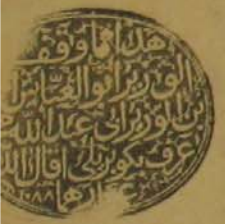 هذا ما وقف
الوزير ابو العباس ا
بن الوزير ابي عبد الله
عرف بكوپريلي اقال الله
عثارها
١٠٨٨